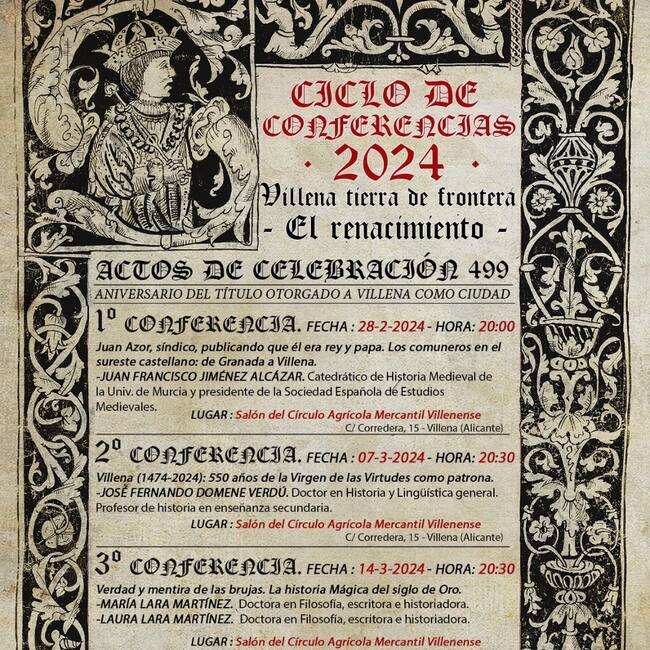 CICLO DE
CONFERENCIAS
· 2024 ·
Villena tierra de frontera
- El renacimiento -
ACTOS DE CELEBRACIÓN 499
ANIVERSARIO DEL TÍTULO OTORGADO A VILLENA COMO CIUDAD
1º CONFERENCIA. FECHA : 28-2-2024 - HORA: 20:00
Juan Azor, síndico, publicando que él era rey y papa. Los comuneros en el
sureste castellano: de Granada a Villena.
-JUAN FRANCISCO JIMÉNEZ ALCÁZAR. Catedrático de Historia Medieval de
la Univ. de Murcia y presidente de la Sociedad Española de Estudios
Medievales.
LUGAR : Salón del Círculo Agrícola Mercantil Villenense
C/ Corredera, 15 - Villena (Alicante)
2º CONFERENCIA. FECHA : 07-3-2024 - HORA: 20:30
Villena (1474-2024): 550 años de la Virgen de las Virtudes como patrona.
-JOSÉ FERNANDO DOMENE VERDÚ. Doctor en Historia y Lingüística general.
Profesor de historia en enseñanza secundaria.
LUGAR : Salón del Círculo Agrícola Mercantil Villenense
C/ Corredera, 15 - Villena (Alicante)
3º CONFERENCIA. FECHA : 14-3-2024 - HORA: 20:30
Verdad y mentira de las brujas. La historia Mágica del siglo de Oro.
-MARÍA LARA MARTÍNEZ. Doctora en Filosofía, escritora e historiadora.
-LAURA LARA MARTÍNEZ. Doctora en Filosofía, escritora e historiadora.
LUGAR : Salón del Círculo Agrícola Mercantil Villenense